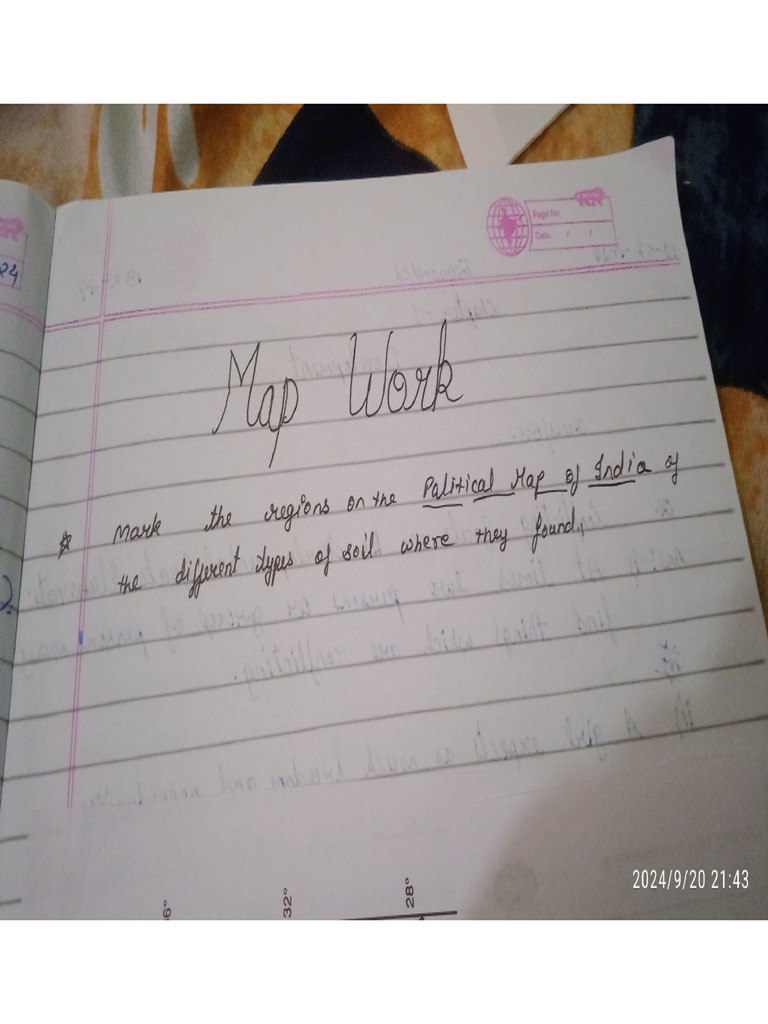 24
Page No.
Date. / /
Map Work
Mark the regions on the Palitical Map of India of
the different types of soil where they found,
32°
28°
2024/9/20 21:43